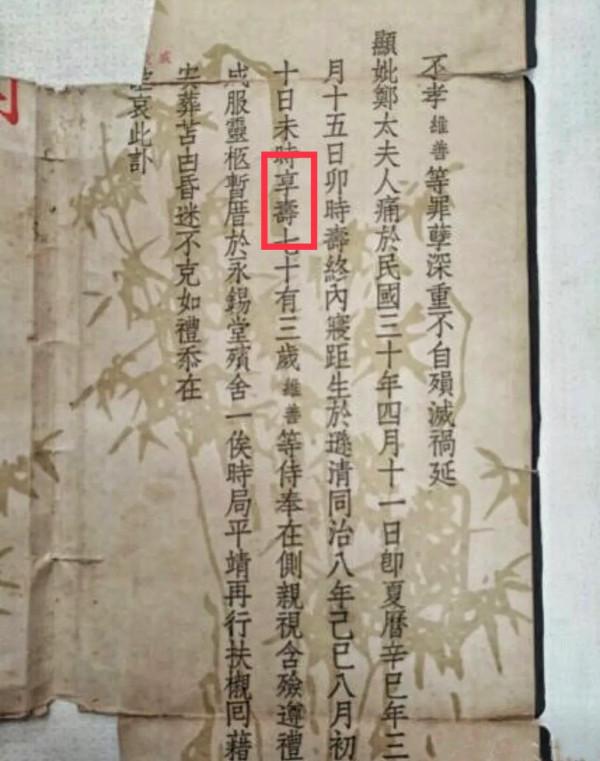 不孝雄善等罪孽深重不自殞滅禍延
顯妣鄭太夫人痛於民國三十年四月十一日卽夏曆辛巳年三
月十五日卯時壽終內寢距生於遜清同治八年己巳八月初
十日未時享壽七十有三歲雄善等侍奉在側親視含殮遵禮
成服靈柩暫厝於永錫堂殯舍一俟時局平靖再行扶櫬回籍
安葬苫凷昏迷不克如禮忝在
哀此訃